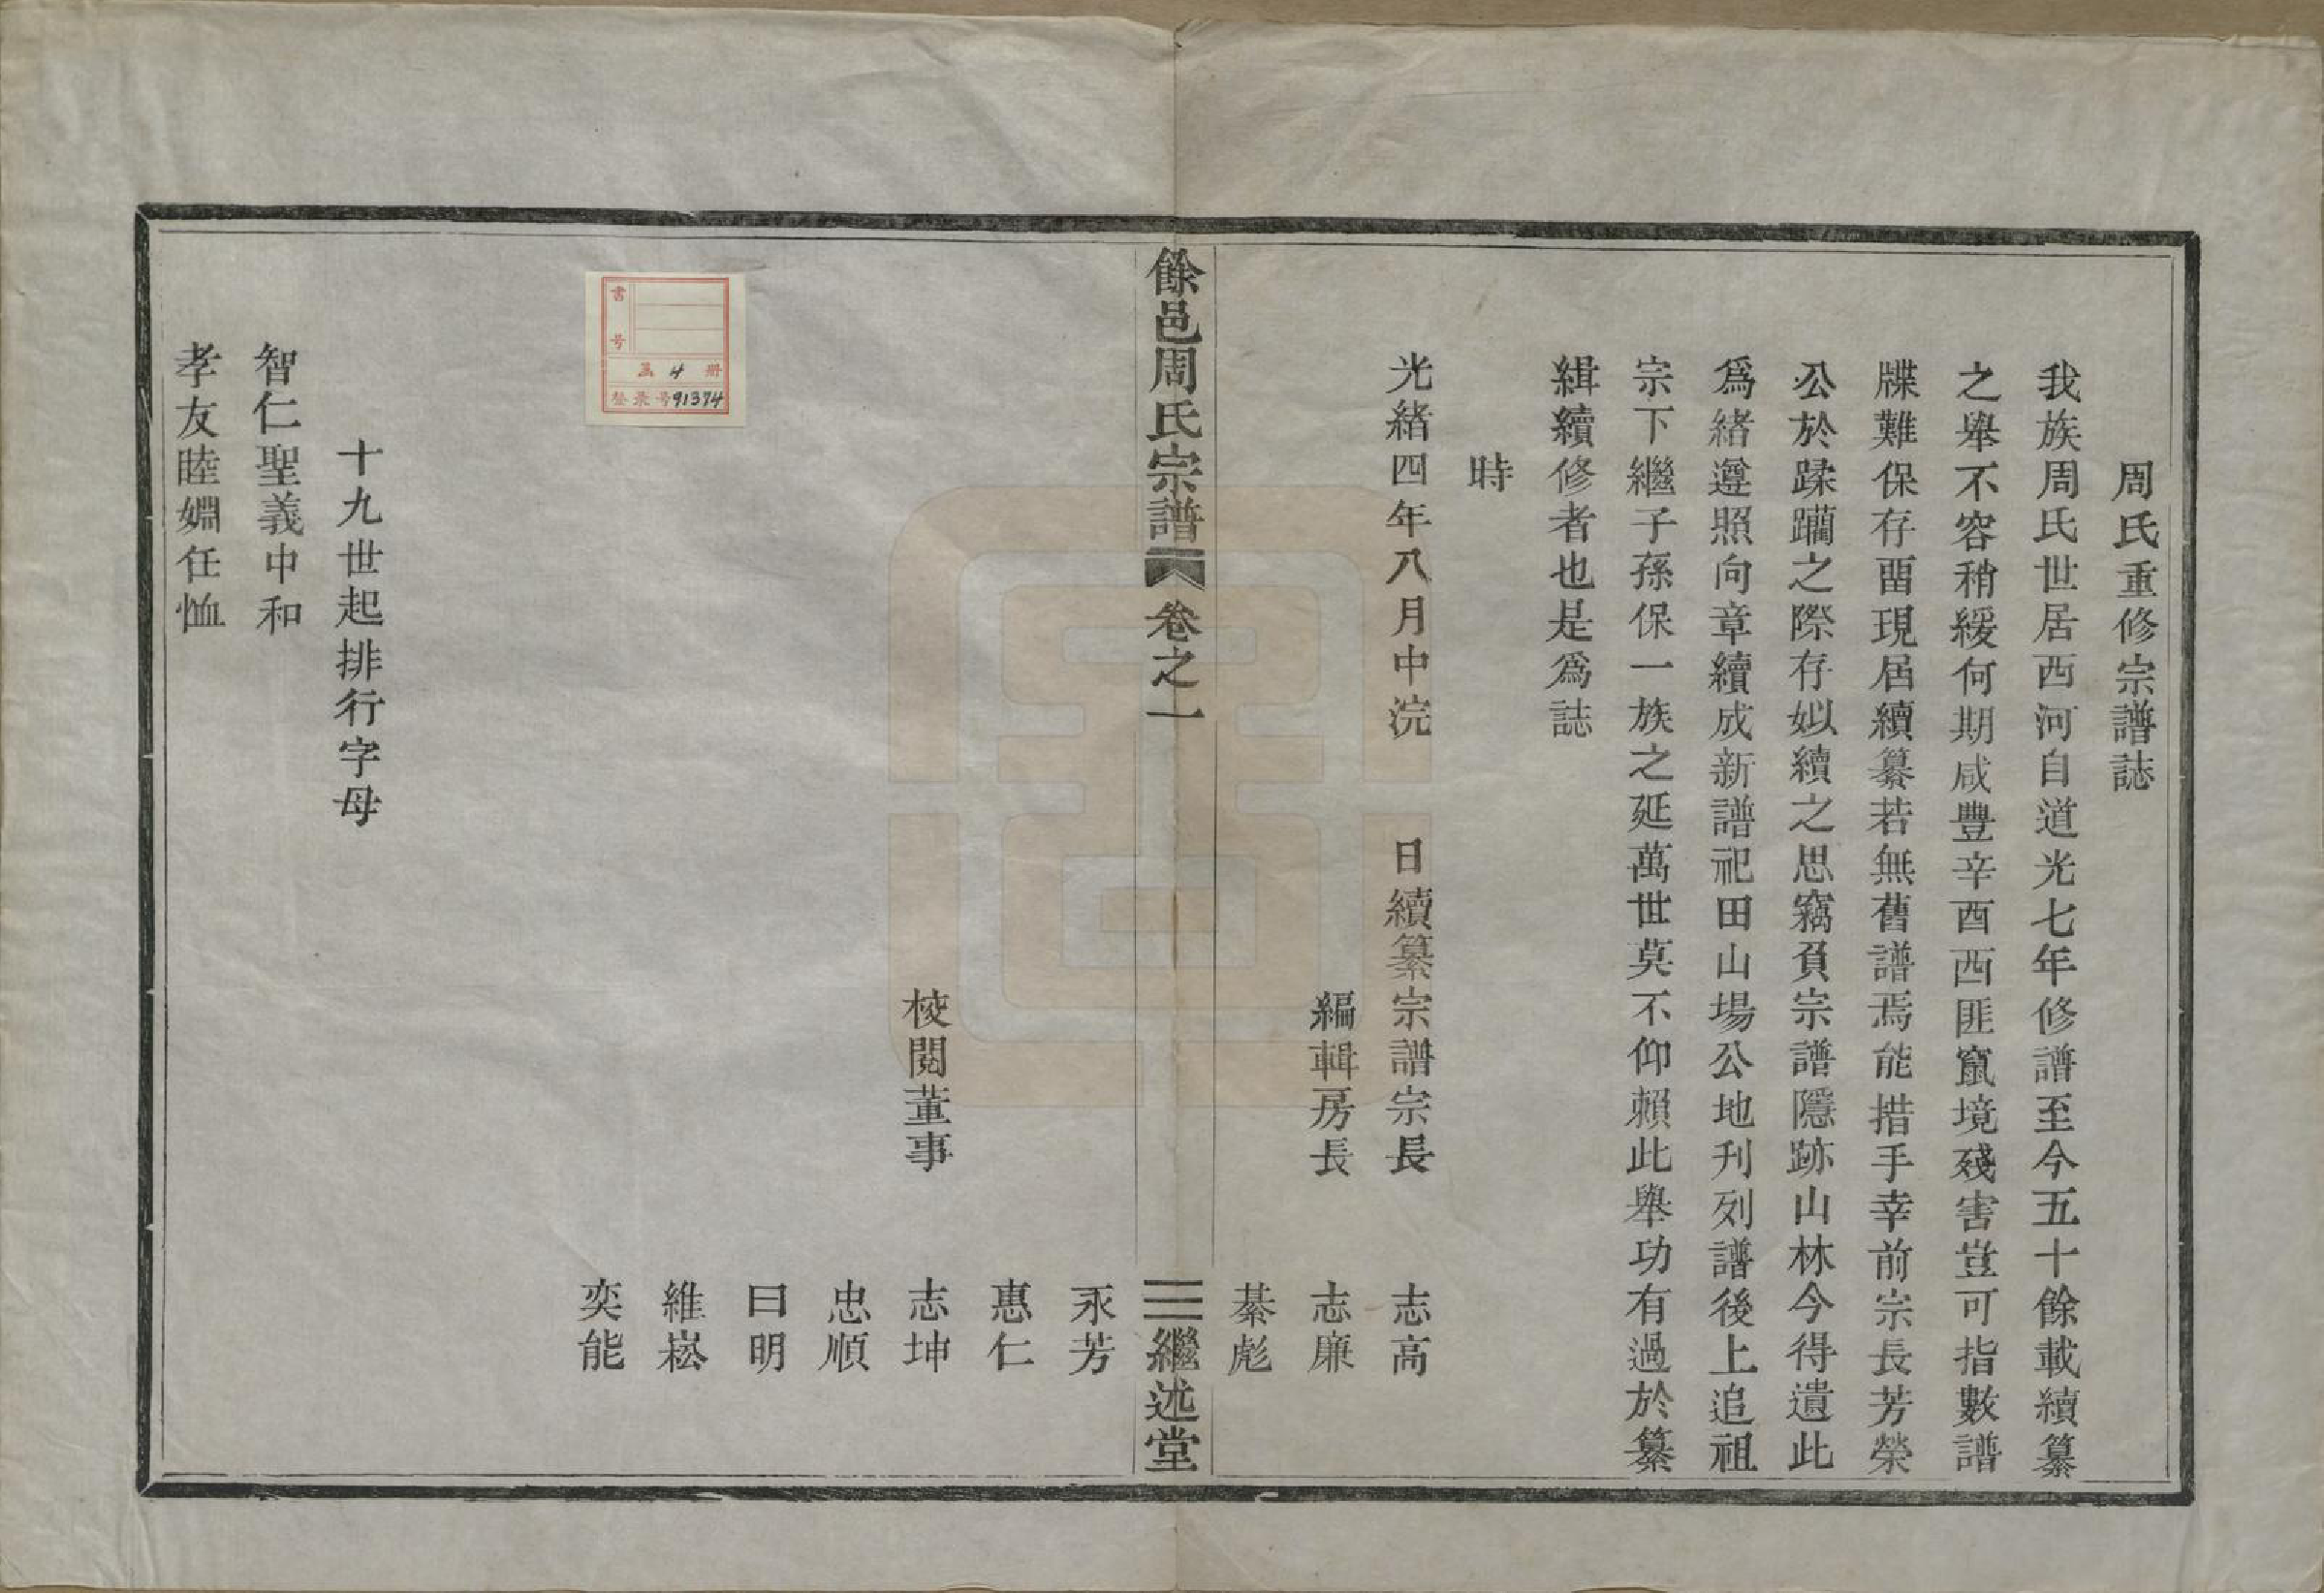 周氏重修宗譜誌
我族周氏世居西河自道光七年修譜至今五十餘載續纂
之舉不容稍緩何期咸豐辛酉西匪竄境殘害豈可指數譜
牒難保存畱現居續纂若無舊譜焉能措手幸前宗長芳榮
公於蹂躪之際存姒續之思竊負宗譜隱跡山林今得遺此
爲緒遵照向章續成新譜祀田山場公地刋列譜後上追祖
宗下繼子孫保一族之延萬世莫不仰賴此舉功有過於纂
緝續修者也是爲誌
時
光緒四年八月中浣 日續纂宗譜宗長 志高
編輯房長 志廉
綦彪
餘邑周氏宗譜 卷之一 三 繼述堂
永芳
惠仁
校閱董事 志坤
忠順
曰明
維崧
奕能
書号
函 4 册
登录号91374
十九世起排行字母
智仁聖義中和
孝友睦婣任恤